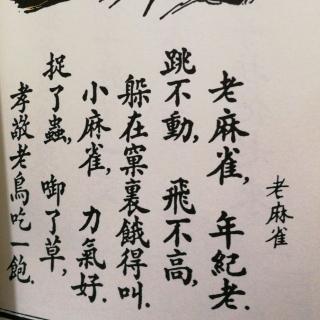 老麻雀
老麻雀，年紀老．
跳不動，飛不高，
躲在窠裏餓得叫．
小麻雀，力氣好．
捉了蟲，啣了草，
孝敬老鳥吃一飽．